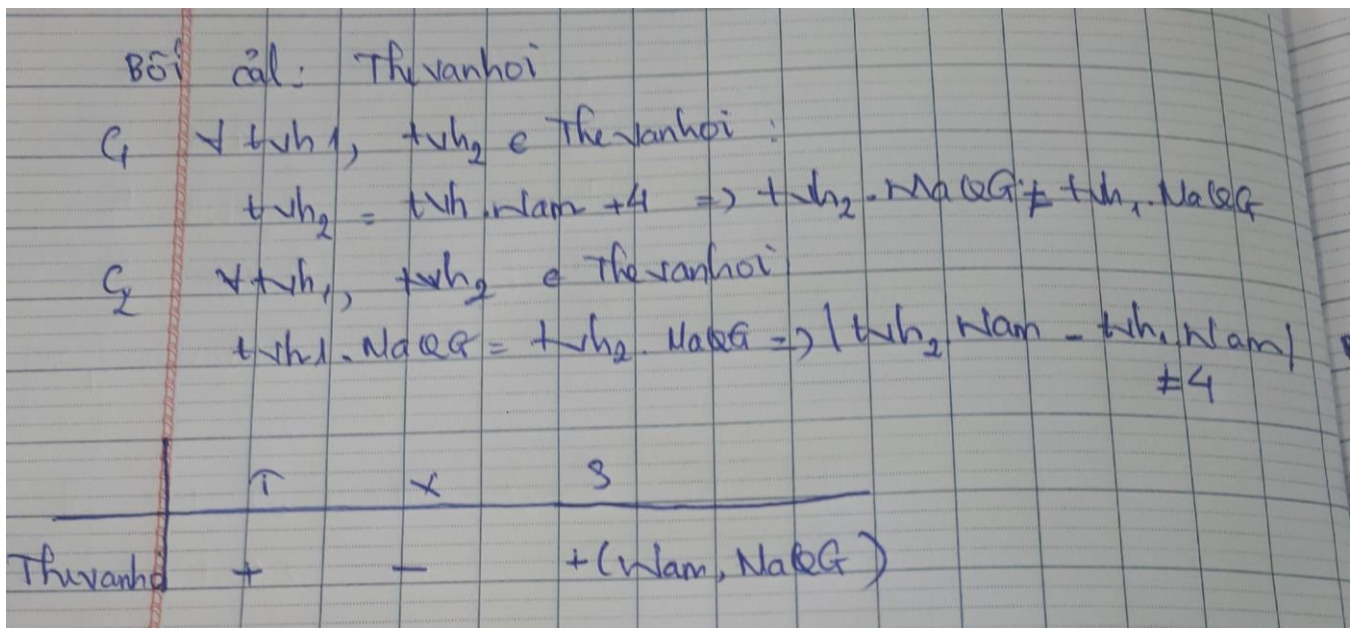 Bối cảl: Thivanhoi
C1 ∀ tvh1, tvh2 ∈ Thevanhoi:
tvh2 = tvh.Nam +4 => tvh2.MaQG ≠ tvh1.MaQG
C2 ∀tvh1, tvh2 ∈ Thevanhoi
tvh1.MaQG = tvh2.MaQG => |tvh2.Nam - tvh1.Nam|
≠4
T X S
Thivanho + - +(Nam, MaQG)